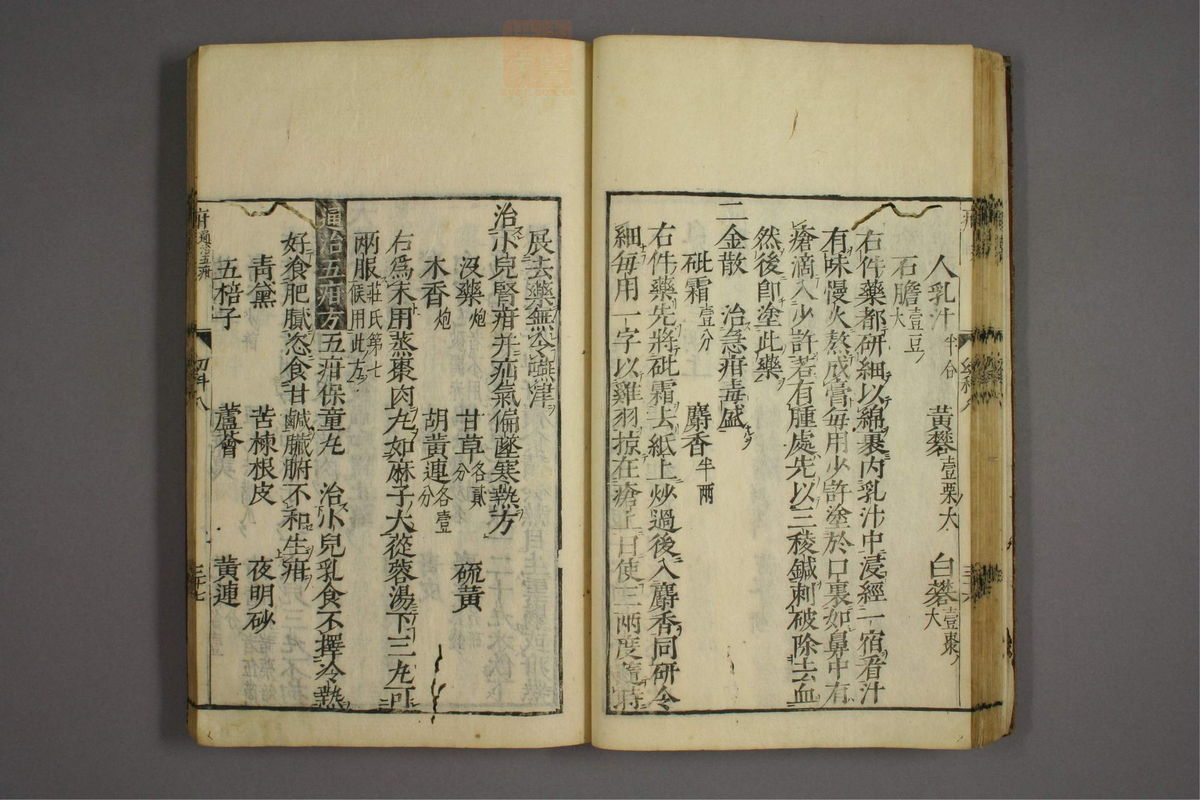 人乳汁半合　黃礬壹栗大　白礬壹棗大
石膽壹豆大
右件藥都研細以綿裹內乳汁中浸經一宿看汁
有味慢火熬成膏每用少許塗於口裏如鼻中有
瘡滴入少許若有腫處先以三稜鍼刺破除去血
然後卽塗此藥
二金散　治急疳毒盛
砒霜壹分　麝香半兩
右件藥先將砒霜去紙上炒過後入麝香同研令
細每用一字以雞羽掠在瘡上日使三兩度隨時
展去藥無令嚥津
治小兒腎疳幷疝氣偏墜寒熱方
沒藥炮　甘草各貳分　硫黃
木香炮　胡黃連各壹分
右爲末用蒸棗肉丸如麻子大從蓉湯下三丸可
兩服莊氏第七候用此方
通治五疳方　五疳保童丸　治小兒乳食不擇冷熱
好飡肥膩恣食甘鹹臟腑不和生疳
靑黛　苦楝根皮　夜明砂
五棓子　蘆薈　黃連
通治五疳
幼科八
三十七